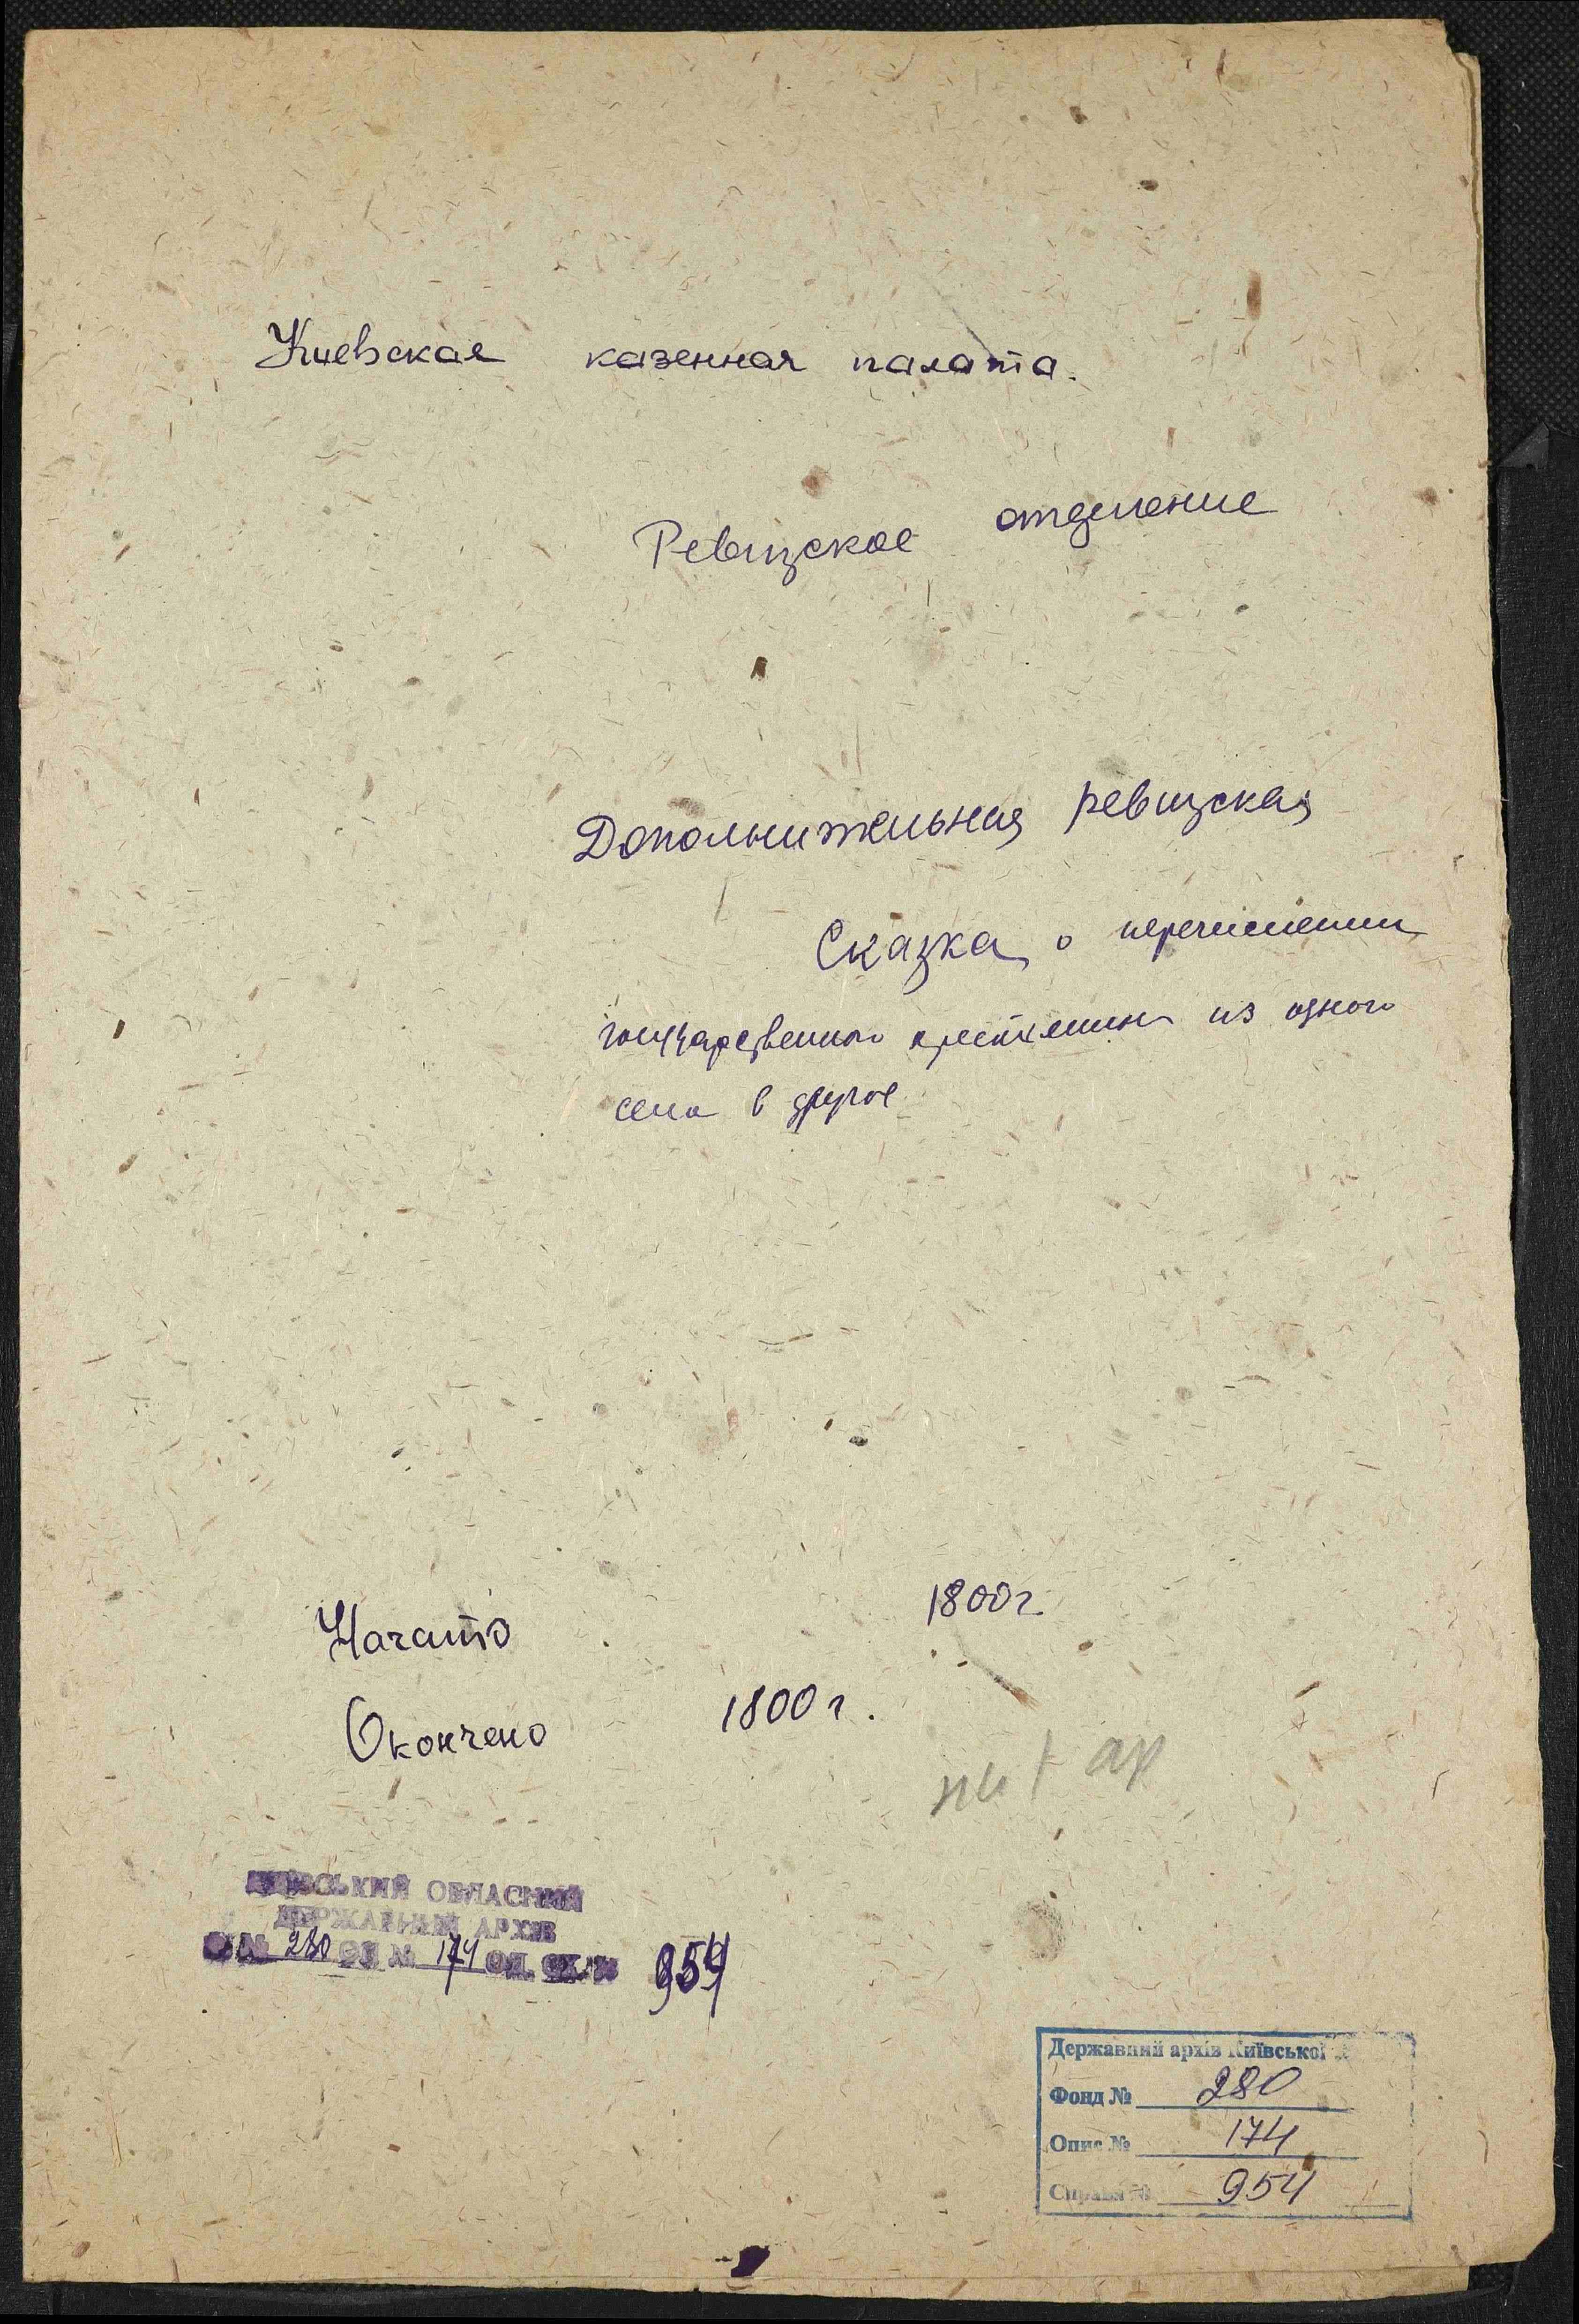 Киевская казенная палата.
Ревизское отделение
Дополнительная ревизская
Сказка о перечислении
государственного крестьянина из одного
села в другое
Начато 1800 г.
Окончено 1800 г.
КИЇВСЬКИЙ ОБЛАСНИЙ
ДЕРЖАВНИЙ АРХІВ
Ф № 280 ОП № 174 ОД. ЗБ. № 954
Державний архів Київської
Фонд № 280
Опис № 174
Справа № 954